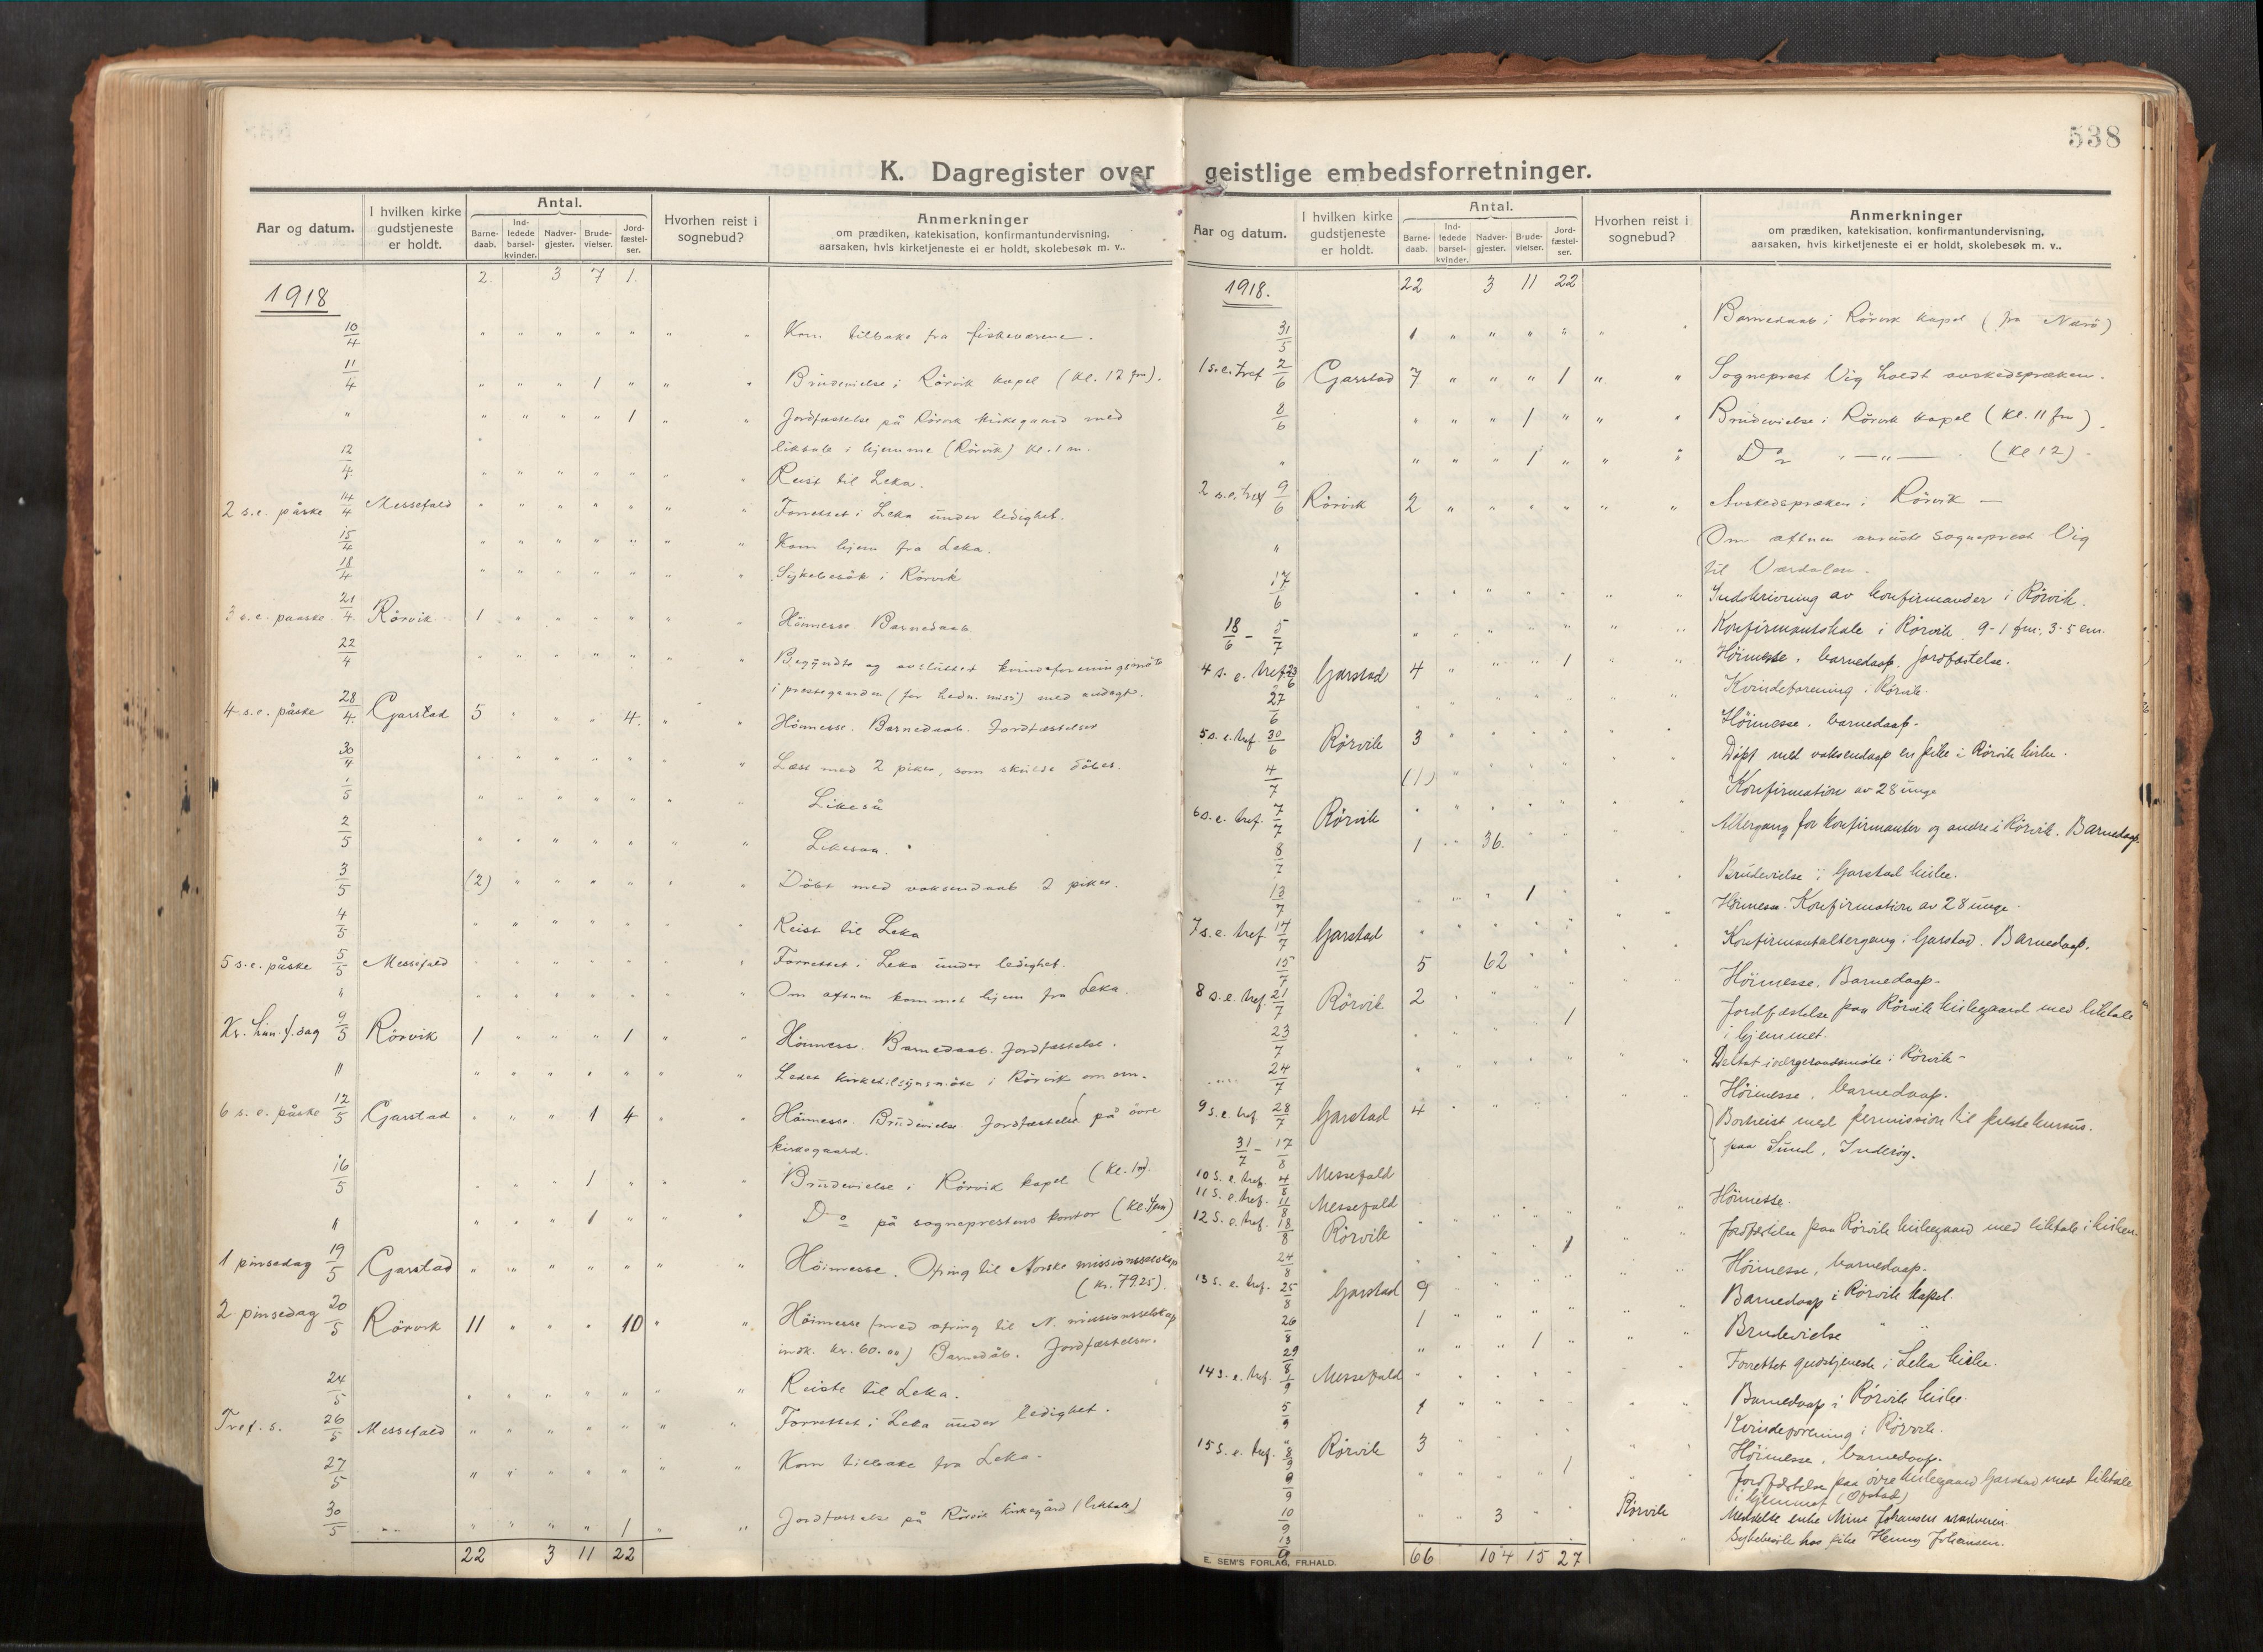 538
K. Dagregister over geistlige embedsforretninger.
Aar og datum. I hvilken kirke gudstjeneste er holdt. Antal. Barne-daab. Ind-ledede barsel-kvinder. Nadver-gjester. Brude-vielser. Jord-fæstel-ser. Hvorhen reist i sognebud? Anmerkninger om prædiken, katekisation, konfirmantundervisning, aarsaken, hvis kirketjeneste ei er holdt, skolebesøk m. v..
2. 3 7 1.
1918
10/4 " " " " " " " Kom tilbake fra fiskeværene.
11/4 " " " 1 " " " Brudevielse i Rörvik kapel (kl. 12 fm).
" " " " " 1 " " Jordfæstelse på Rörvik kirkegaard med
liktale i hjemme (Rörvik) kl. 1 m.
12/4 " " " " " " " Reist til Leka.
2 s.e. påske 14/4 Messefald " " " " " " Forrettet i Leka under ledighet.
15/4 " " " " " " " Kom hjem fra Leka.
18/4 " " " " " " " Sykebesök i Rörvik
3 s.e. paaske 21/4 Rörvik 1 " " " " " " Höimesse. Barnedaab
22/4 " " " " " " " Begyndte og avsluttet kvindeforeningsmöte
i prestegaarden (for hedn. miss.) med andagt.
4 s.e. påske 28/4 Garstad 5 " " " 4. " " Höimesse. Barnedaab. Jordfæstelser
30/4 " " " " " " Læst med 2 piker, som skulde döbes.
1/5 " " " " " " " Likeså
2/5 " " " " " " " Likesaa.
3/5 (2) " " " " " " Döbt med voksendaab 2 piker.
4/5 " " " " " " " Reist til Leka
5 s.e. påske 5/5 Messefald " " " " " " " Forrettet i Leka under ledighet.
" " " " " " " Om aftnen kommet hjem fra Leka.
Kr. him.f.dag 9/5 Rörvik 1 " " " 1 " " Höimesse. Barnedaab. Jordfæstelse.
" " " " " " " " Ledet kirketilsynsmöte i Rörvik om em.
6 s.e. påske 12/5 Garstad " " " 1 4 " " Höimesse. Brudevielse. Jordfæstelse på övre
kirkegaard.
16/5 " " " 1 " " " Brudevielse i Rörvik kapel
" " " " 1 " " " Do på sogneprestens kontor
1 pinsedag 19/5 Garstad " " " " " " " Höimesse. Ofring til Norske missionsselskap
(kr. 79.25).
2 pinsedag 20/5 Rörvik 11 " " " 10 " " Höimesse (med ofring til N. missionsselskap
indk. kr. 60.00) Barnedåb. Jordfæstelser.
24/5 " " " " " " " Reiste til Leka.
Tref. s. 26/5 Messefald " " " " " " " Forrettet i Leka under ledighet.
27/5 " " " " " " " Kom tilbake fra Leka.
30/5 " " " " 1 " " Jordfæstelse på Rörvik kirkegård (liktale)
22 3 11 22
Aar og datum. I hvilken kirke gudstjeneste er holdt. Antal. Barne-daab. Ind-ledede barsel-kvinder. Nadver-gjester. Brude-vielser. Jord-fæstel-ser. Hvorhen reist i sognebud? Anmerkninger om prædiken, katekisation, konfirmantundervisning, aarsaken, hvis kirketjeneste ei er holdt, skolebesøk m. v..
1918. 22 3 11 22
31/5 1 " " " " " " Barnedaab i Rörvik kapel (fra Nærö)
1 s.e. tref 2/6 Garstad 7 " " " 1 " " Sogneprest Vig holdt avskedspræken.
8/6 " " " 1 " " " Brudevielse i Rörvik kapel (kl. 11 fm).
" " " " 1 " " " Do " — " — (kl 12) -
2 s.e. tref 9/6 Rörvik 2 " " " " " " Avskedspræken i Rörvik —
" Om aftnen avreiste sogneprest Vig
til Værdalen.
17/6 " " " " " " " Indskrivning av konfirmander i Rörvik.
18/6 - 5/7 " " " " " " " Konfirmantskole i Rörvik 9-1 fm; 3-5 em.
4 s. e. tref. 23/6 Garstad 4 " " " 1 " " Höimesse, barnedaap. Jordfæstelse.
27/6 Kvindeforening i Rörvik.
5 s. e. tref 30/6 Rörvik 3 Höimesse, barnedaap.
4/7 (1) Döpt med voksendaap en pike i Rörvik kirke.
6 s. e. tref. 7/7 Rörvik Konfirmation av 28 unge
8/7 1 " 36. Altergang for konfirmanter og andre i Rörvik. Barnedaap.
13/7 1 Brudevielse i Garstad kirke.
7 s.e. tref. 14/7 Garstad Höimesse. Konfirmation av 28 unge.
15/7 5 62 Konfirmantaltergang i Garstad. Barnedaap.
8 s.e. tref. 21/7 Rörvik 2 Höimesse. Barnedaap.
23/7 1 Jordfæstelse paa Rörvik kirkegaard med liktale
i hjemmet.
24/7 Deltat i vergeraadsmöte i Rörvik -
9 s.e. tref 28/7 Garstad 4 Höimesse, barnedaap.
31/7 - 17/8 Bortreist med permission til prestekursus.
paa Sund, Inderöy.
10 s. e. tref. 4/8 Messefald
11 s. e. tref. 11/8 Messefald
12 s. e. tref. 18/8 Rörvik Höimesse.
24/8 1 Jordfæstelse paa Rörvik kirkegaard med liktale i kirken.
13 s. e. tref. 25/8 Garstad 9 Höimesse, barnedaap.
26/8 1 Barnedaap i Rörvik kapel.
29/8 1 Brudevielse " "
14 s. e. tref. 1/9 Messefald Forrettet gudstjeneste i Leka kirke.
5/9 1 Barnedaap i Rörvik kirke.
" Kvindeforening i Rörvik.
15 s. e. tref. 8/9 Rörvik 3 Höimesse, barnedaap.
9/9 1 Jordfæstelse paa övre kirkegaard Garstad med liktale
i hjemmet
10/9 3 Rörvik Meddelte enke Johansen nadveren
13/9 Sykebesök hos pike Henny Johansen.
66 104 15 27
E. SEM'S FORLAG, FR.HALD.